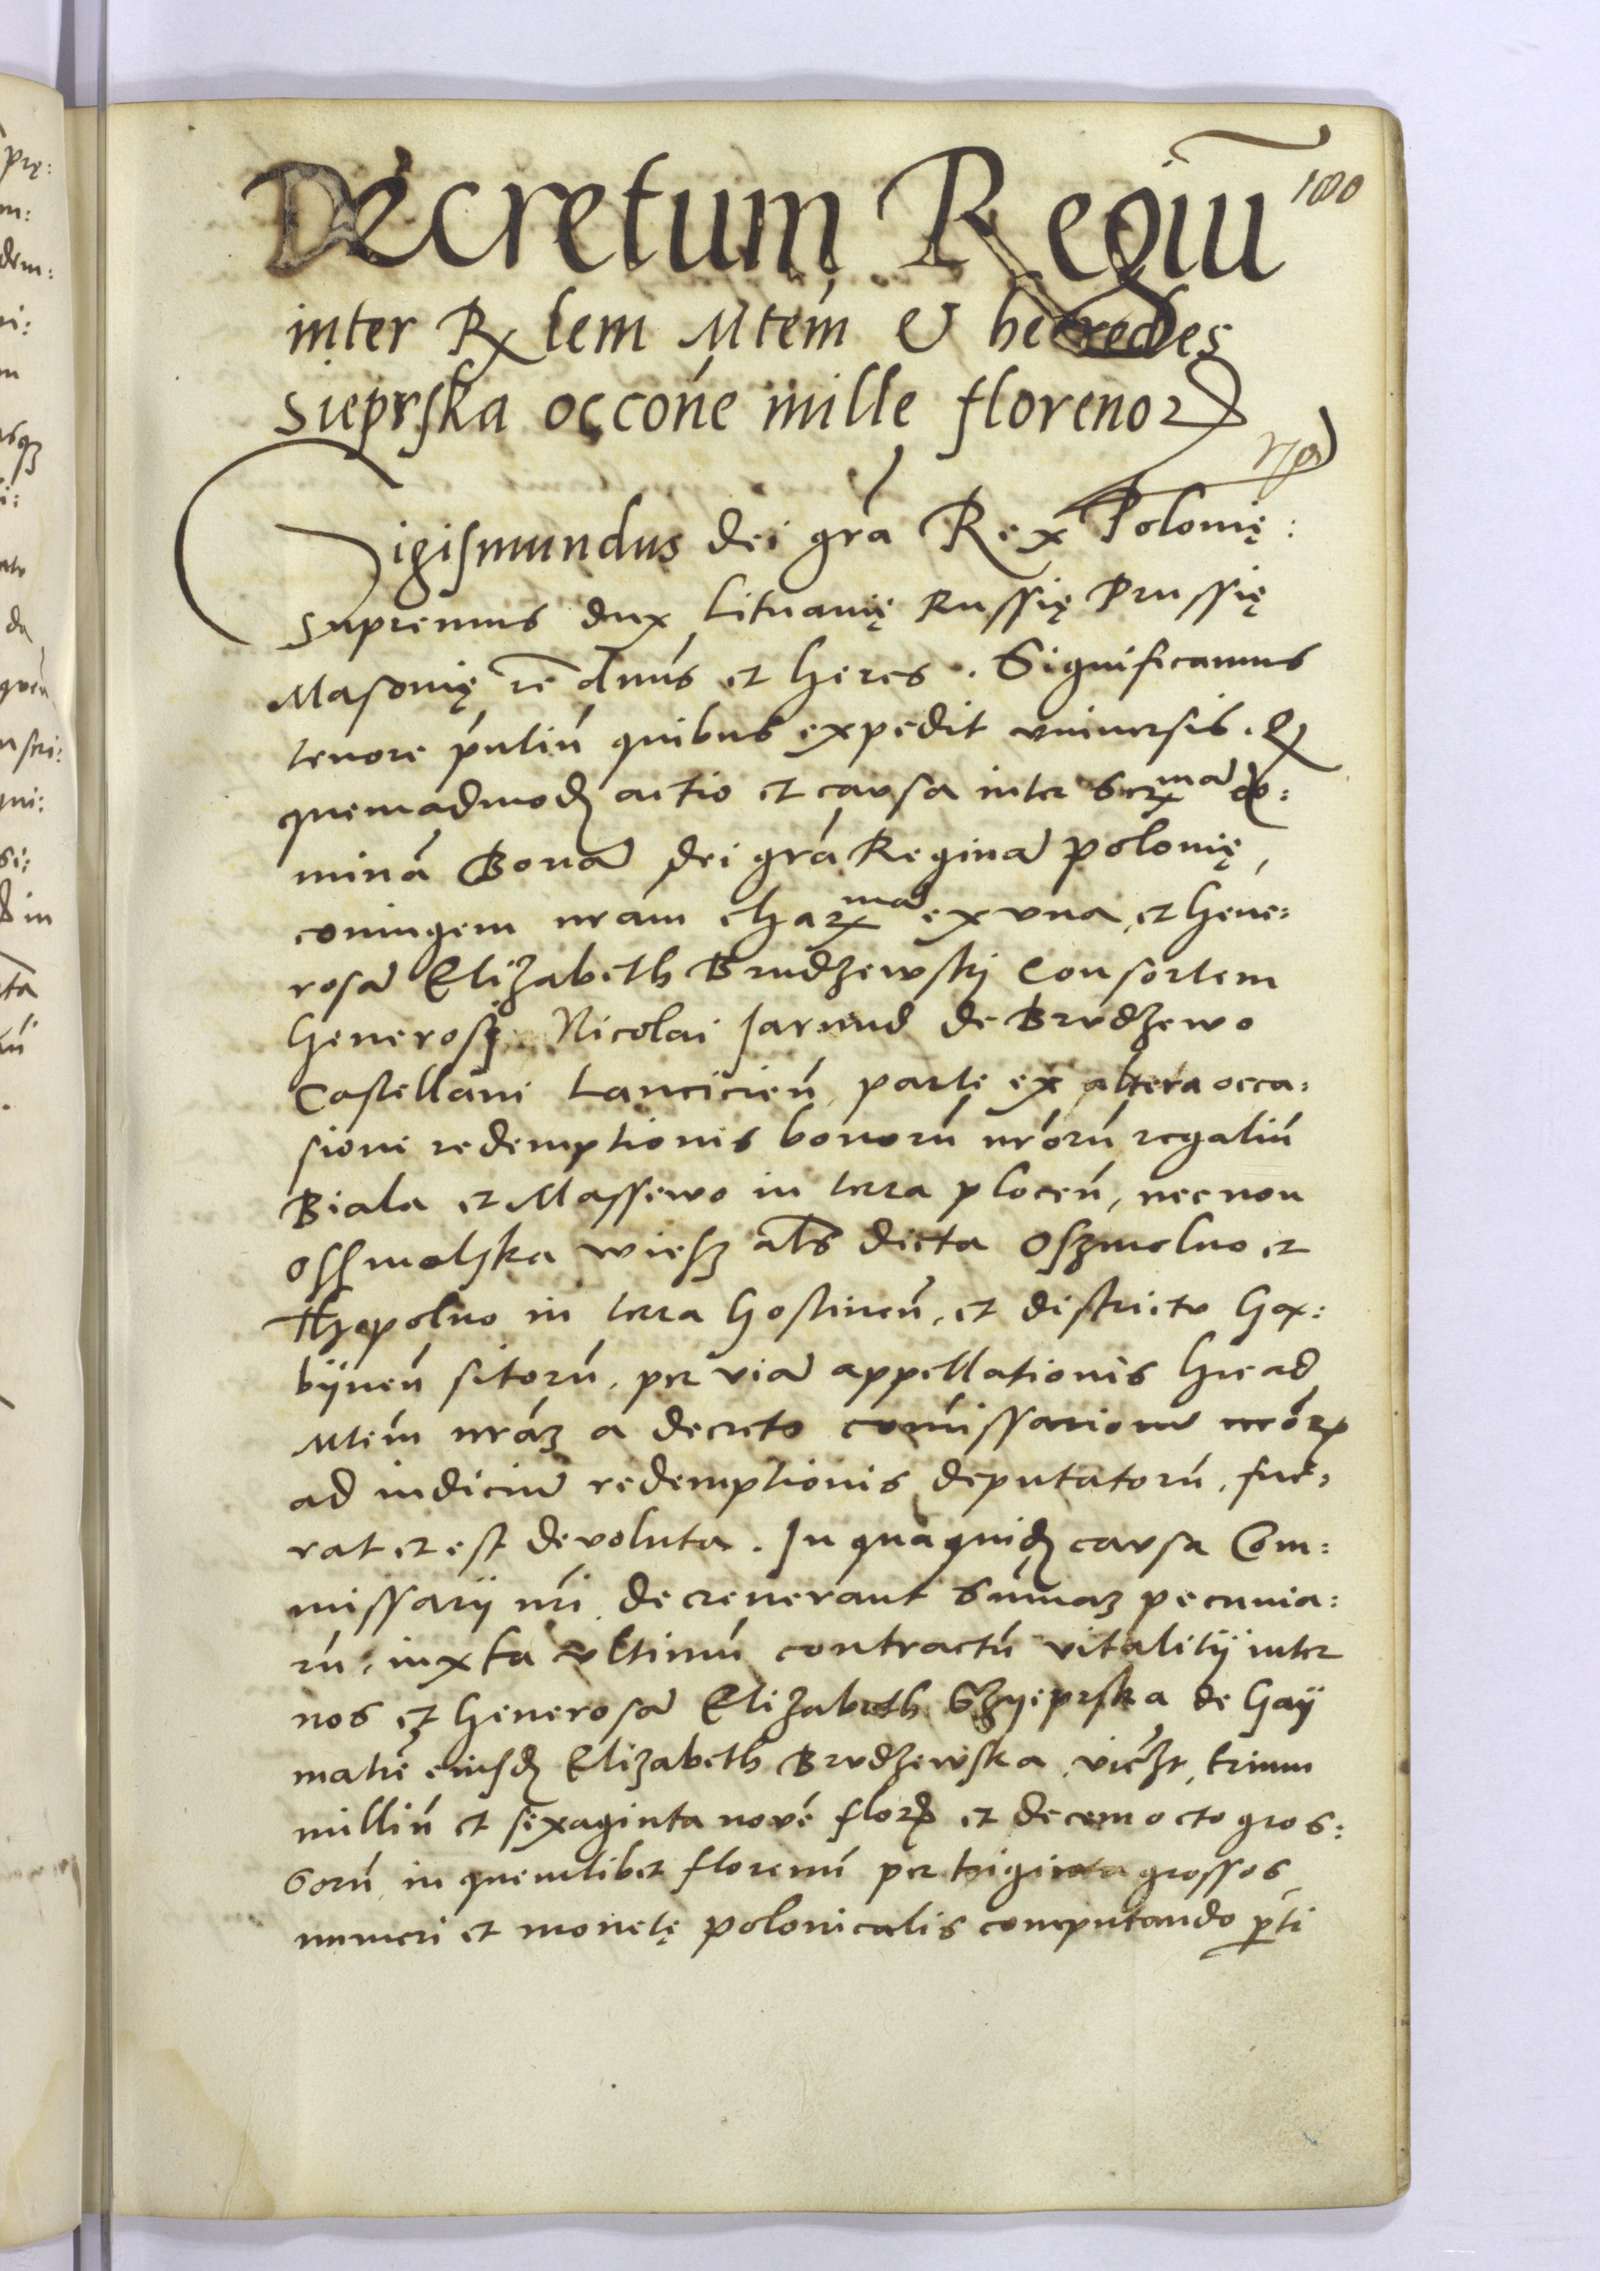 Decretum Regiū 180
inter Rlem Mtem & heredes
Sieprska occōne mille florenor
Sigismundus dei grā Rex Polonię:
Supremus dux Lituanię Russię Prussię
Masovię re dnus et heres. Significamus
tenore pntiū quibus expedit universis. Q
quemadmod actio et causa inter Serma do:
minā Bonā dei grā Reginā polonię
coniugem nram charma ex una, et Gene:
rosā Elizabeth Brudzewskj Consortem
Generosi Nicolai Jarand de Brudzewo
Castellani Lancicieñ parte ex altera occa:
sione redemptionis bonorū nrorū regaliū
Biala et Massewo in terra ploceñ, necnon
Ossmolska wiesz als dicta Oszmolno et
in terra Gostineñ, et districtu Gom:
bijneñ sitorū, per viā appellationis hic ad
Mtem nraz a decreto comissariorū nror
ad iudiciū redemptionis deputatorū, fue:
rat et est devoluta. In qua quid causa Com:
missarij nri decreverant Sumaz pecunia:
rū, iuxta ultimū contractū vitalitij inter
nos et Generosā Elizabeth Szyeprska de Gaÿ
matre eiusd Elizabeth Brudzewska, viczt, trium
milliū et sexaginta novē flor et decem octo gros:
sorū in quemlibet florenū per triginta grossos
numeri et monetę polonicalis computando pti